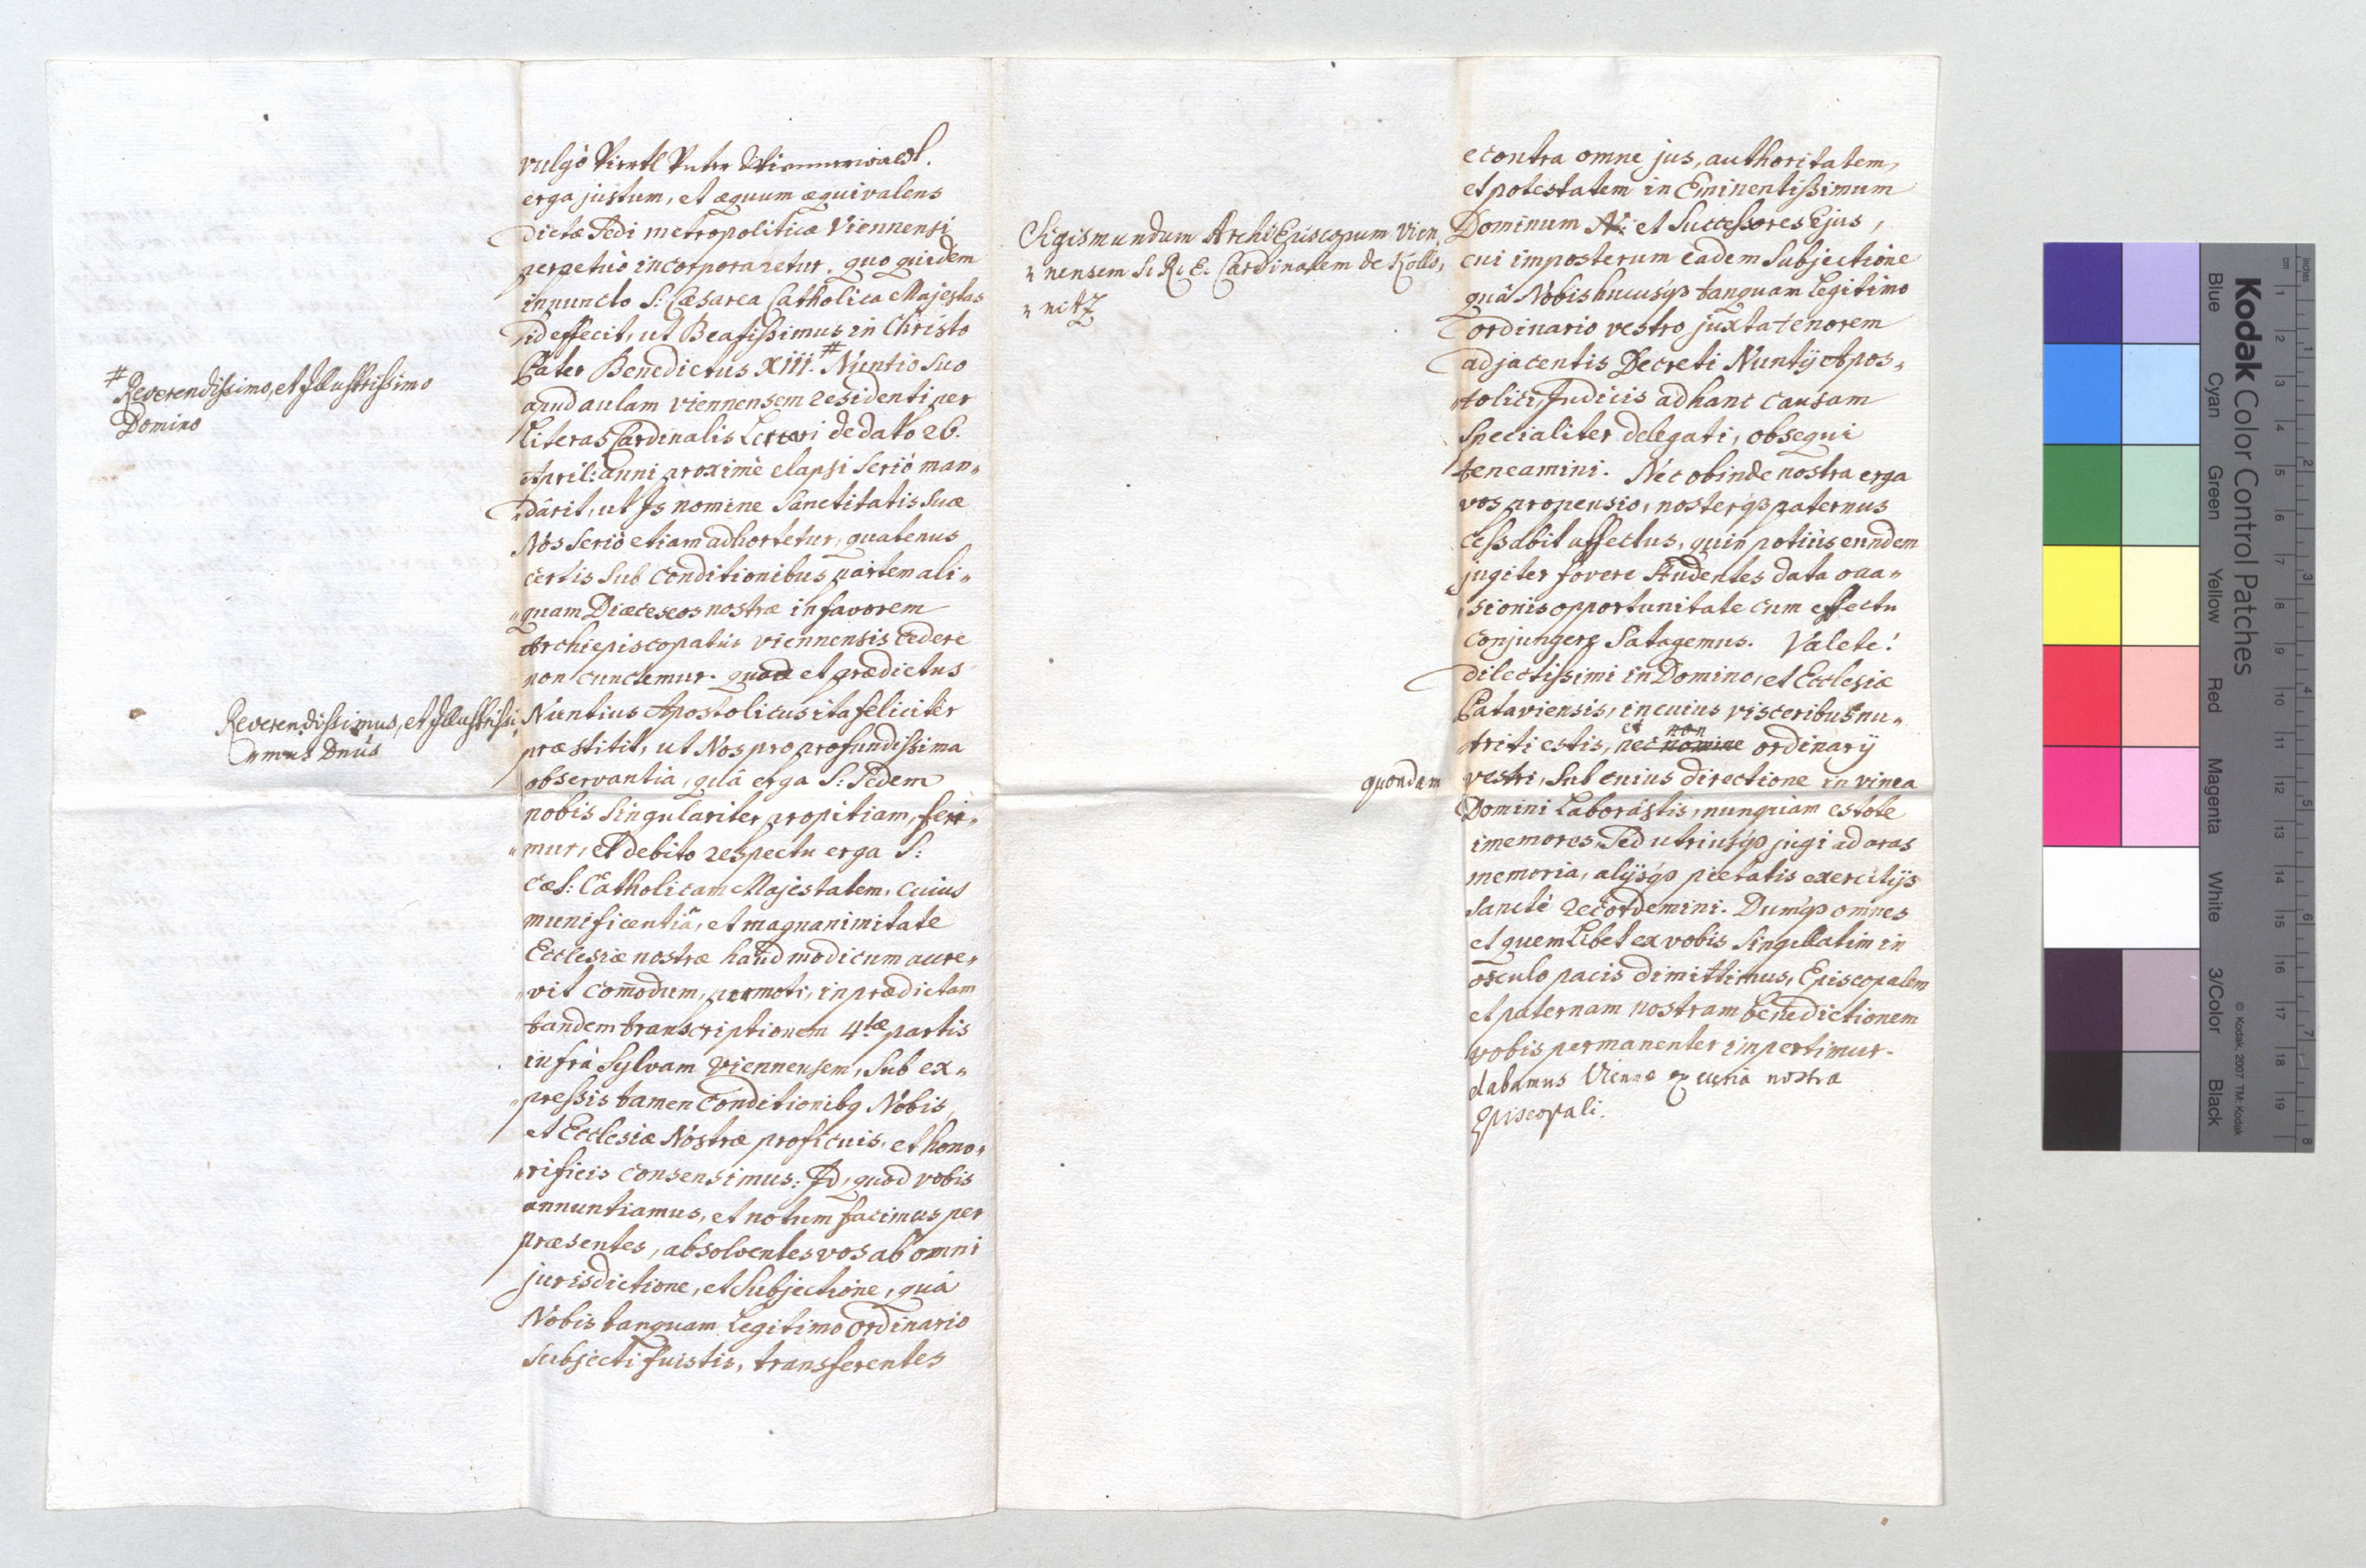 vulgò Viertl Unter Wiennerwaldl.
erga justum, et æquum æquivalens
dictæ Sedi metropoliticæ Viennensi
perpetuò incorporaretur. quo quidem
in puncto S: Cæsarea Catholica Majestas
id effecit, ut Beatissimus in Christo
Pater Benedictus XIII. # Nuntio suo
# Reverendissimo, et Illustrissimo
Domino
apud aulam Viennensem residenti per
Literas Cardinalis Lercari de dato 26.
April: anni proximè elapsi seriò man„
„dârit, ut Is nomine Sanctitatis suæ
Nos seriò etiam adhortetur, quatenus
certis sub conditionibus partem ali„
„quam Diœceseos nostræ in favorem
Archiepiscopatûs Viennensis cedere
non cunctemur. quod et prædictus
Reverendissimus, et Illustrissi„
„mus Dnus
Nuntius Apostolicus ita feliciter
præstitit, ut Nos pro profundissima
observantia, quâ erga S: Sedem
nobis singulariter propitiam, feri„
„mur, et debito respectu erga S:
Cæs: Catholicam Majestatem, cuius
munificentiâ, et magnanimitate
Ecclesiæ nostræ haud modicum accre„
„vit com̄odum, permoti, in prædictam
tandem transcriptionem 4tæ partis
infrà Sylvam Viennensem, sub ex„
„pressis tamen conditionibq Nobis,
et Ecclesiæ Nostræ proficuis, et hono„
„rificis consensimus: Id, quod vobis
annuntiamus, et notum facimus per
præsentes, absolventes vos ab omni
jurisdictione, et subjectione, quâ
Nobis tanquam Legitimo ordinario
subjecti fuistis, transferentes
econtra omne jus, authoritatem,
et potestatem in Eminentissimum
Dominum N: et Successores Ejus,
Sigismundum ArchiEpiscopum Vien„
„nensem S. R. E. Cardinalem de Kollo„
„nitz
cui imposterum eadem subjectione
quâ Nobis hucusq3 tanquam Legitimo
ordinario vestro juxta tenorem
adjacentis Decreti Nuntij Apos„
„tolici, Judicis ad hanc causam
specialiter delegati, obsequi
teneamini. Nec obinde nostra erga
vos propensio, nosterq3 paternus
cessabit affectus, quin potiùs eundem
jugiter fovere studentes data occa„
„sionis opportunitate cum effectu
conjungere satagemus. Valete!
dilectissimi in Domino, et Ecclesiæ
Pataviensis, in cuius visceribus nu„
et non
„triti estis, nec nomine ordinarij
quondam vestri, sub cuius directione in vinea
Domini Laborâstis, nunquam estote
immemores, sed utriusq3 jugi ad aras
memoria, alijsq3 pietatis exercitijs
sanctè recordemini. Dumq3 omnes
et quemlibet ex vobis singillatim in
osculo pacis dimittimus, Episcopalem
et paternam nostram benedictionem
vobis permanenter impertimur.
dabamus Viennæ ex curia nostra
Episcopali.
Kodak Color Control Patches
© Kodak, 2007 TM: Kodak
Blue Cyan Green Yellow Red Magenta White 3/Color Black
inches 1 2 3 4 5 6 7 8
cm 1 2 3 4 5 6 7 8 9 10 11 12 13 14 15 16 17 18 19